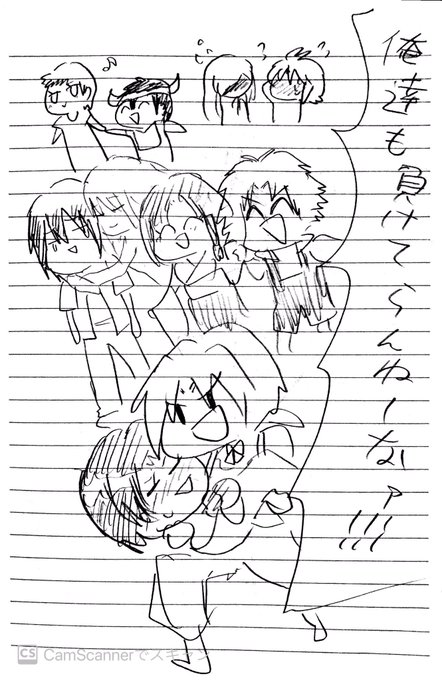 俺達も負けてらんねーなァ!!!
CS CamScannerでスキャン